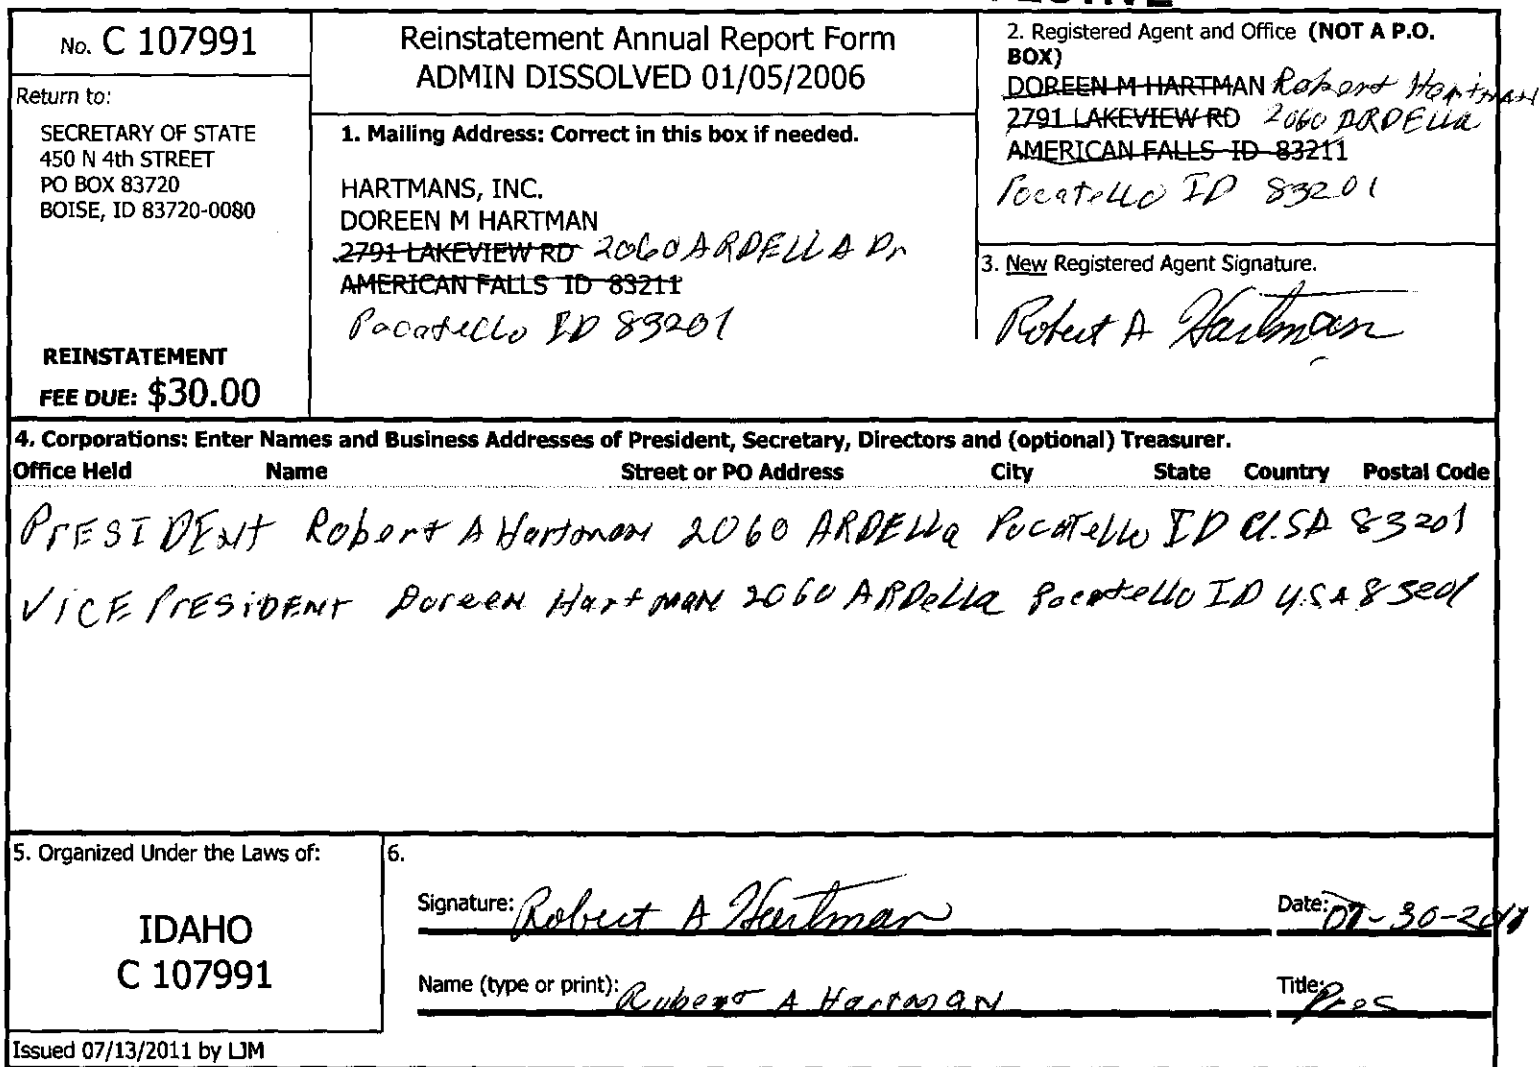 No. C 107991
Return to:
SECRETARY OF STATE
450 N 4th STREET
PO BOX 83720
BOISE, ID 83720-0080
REINSTATEMENT
FEE DUE: $30.00
Reinstatement Annual Report Form
ADMIN DISSOLVED 01/05/2006
1. Mailing Address: Correct in this box if needed.
HARTMANS, INC.
DOREEN M HARTMAN
2791 LAKEVIEW RD 2060 ARDELLA Dr
AMERICAN FALLS ID 83211
Pocatello ID 83201
2. Registered Agent and Office (NOT A P.O.
BOX)
DOREEN M HARTMAN Robert Hartman
2791 LAKEVIEW RD 2060 ARDElla
AMERICAN FALLS ID 83211
Pocatello ID 83201
3. New Registered Agent Signature.
Robert A Hartman
4. Corporations: Enter Names and Business Addresses of President, Secretary, Directors and (optional) Treasurer.
Office Held Name Street or PO Address City State Country Postal Code
PrESIDEnt Robert A Hartman 2060 ARDElla Pocatello ID U.SA 83201
VICE PrESiDENT Doreen Hartman 2060 ARDella Pocatello ID U.S.A 83201
5. Organized Under the Laws of:
IDAHO
C 107991
Issued 07/13/2011 by LJM
6.
Signature: Robert A Hartman Date: 07-30-2011
Name (type or print): Robert A Hartman Title: Pres